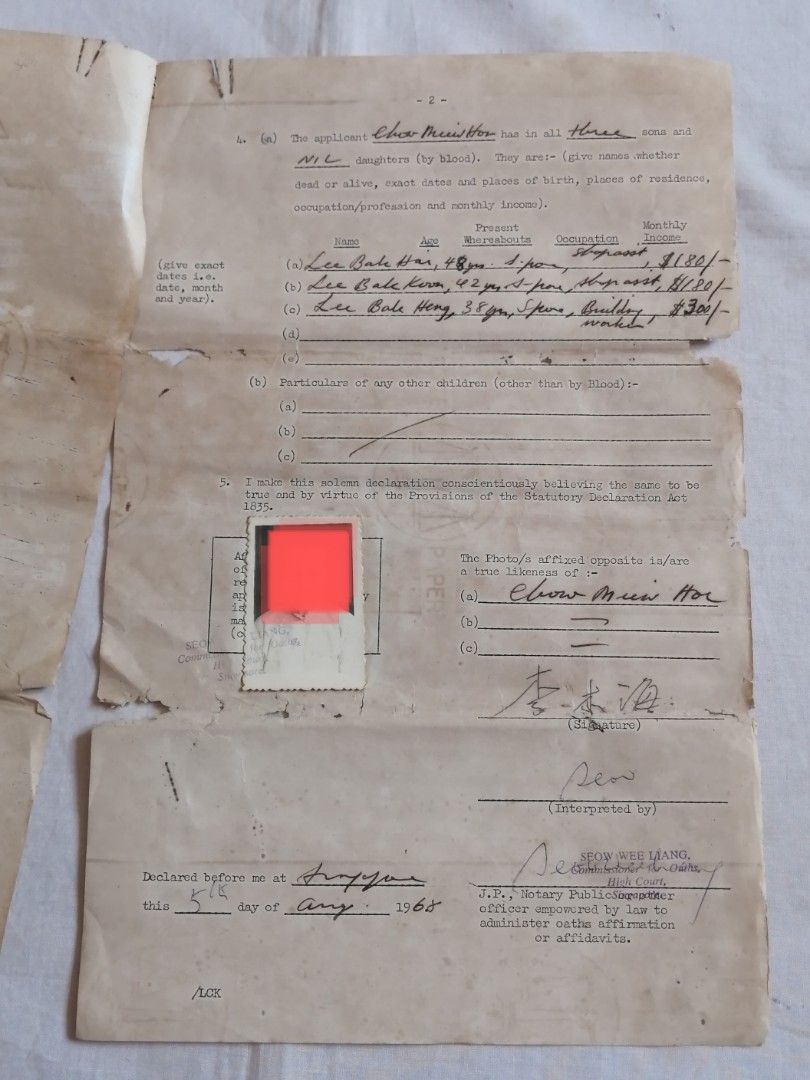 - 2 -
4. (a) The applicant Chow Miew Hor has in all three sons and
NIL daughters (by blood). They are:- (give names whether
dead or alive, exact dates and places of birth, places of residence,
occupation/profession and monthly income).
Name Age Present Whereabouts Occupation Monthly Income
(give exact
dates i.e.
date, month
and year).
(a) Lee Bak Har, 48 yrs. S-pore, shop asst, $180/-
(b) Lee Bak Koon, 42 yrs, S-pore, shop asst, $180/-
(c) Lee Bak Heng, 38 yrs, S'pore, Building worker, $300/-
(d)
(e)
(b) Particulars of any other children (other than by Blood):-
(a)
(b)
(c)
5. I make this solemn declaration conscientiously believing the same to be
true and by virtue of the Provisions of the Statutory Declaration Act
1835.
The Photo/s affixed opposite is/are
a true likeness of :-
(a) Chow Miew Hor
(b) —
(c) —
李木
(Signature)
Seow
(Interpreted by)
SEOW WEE LIANG,
Commissioner for Oaths,
High Court,
Singapore.
Declared before me at Singapore
this 5th day of Aug. 1968
J.P., Notary Public or other
officer empowered by law to
administer oaths affirmation
or affidavits.
/LCK